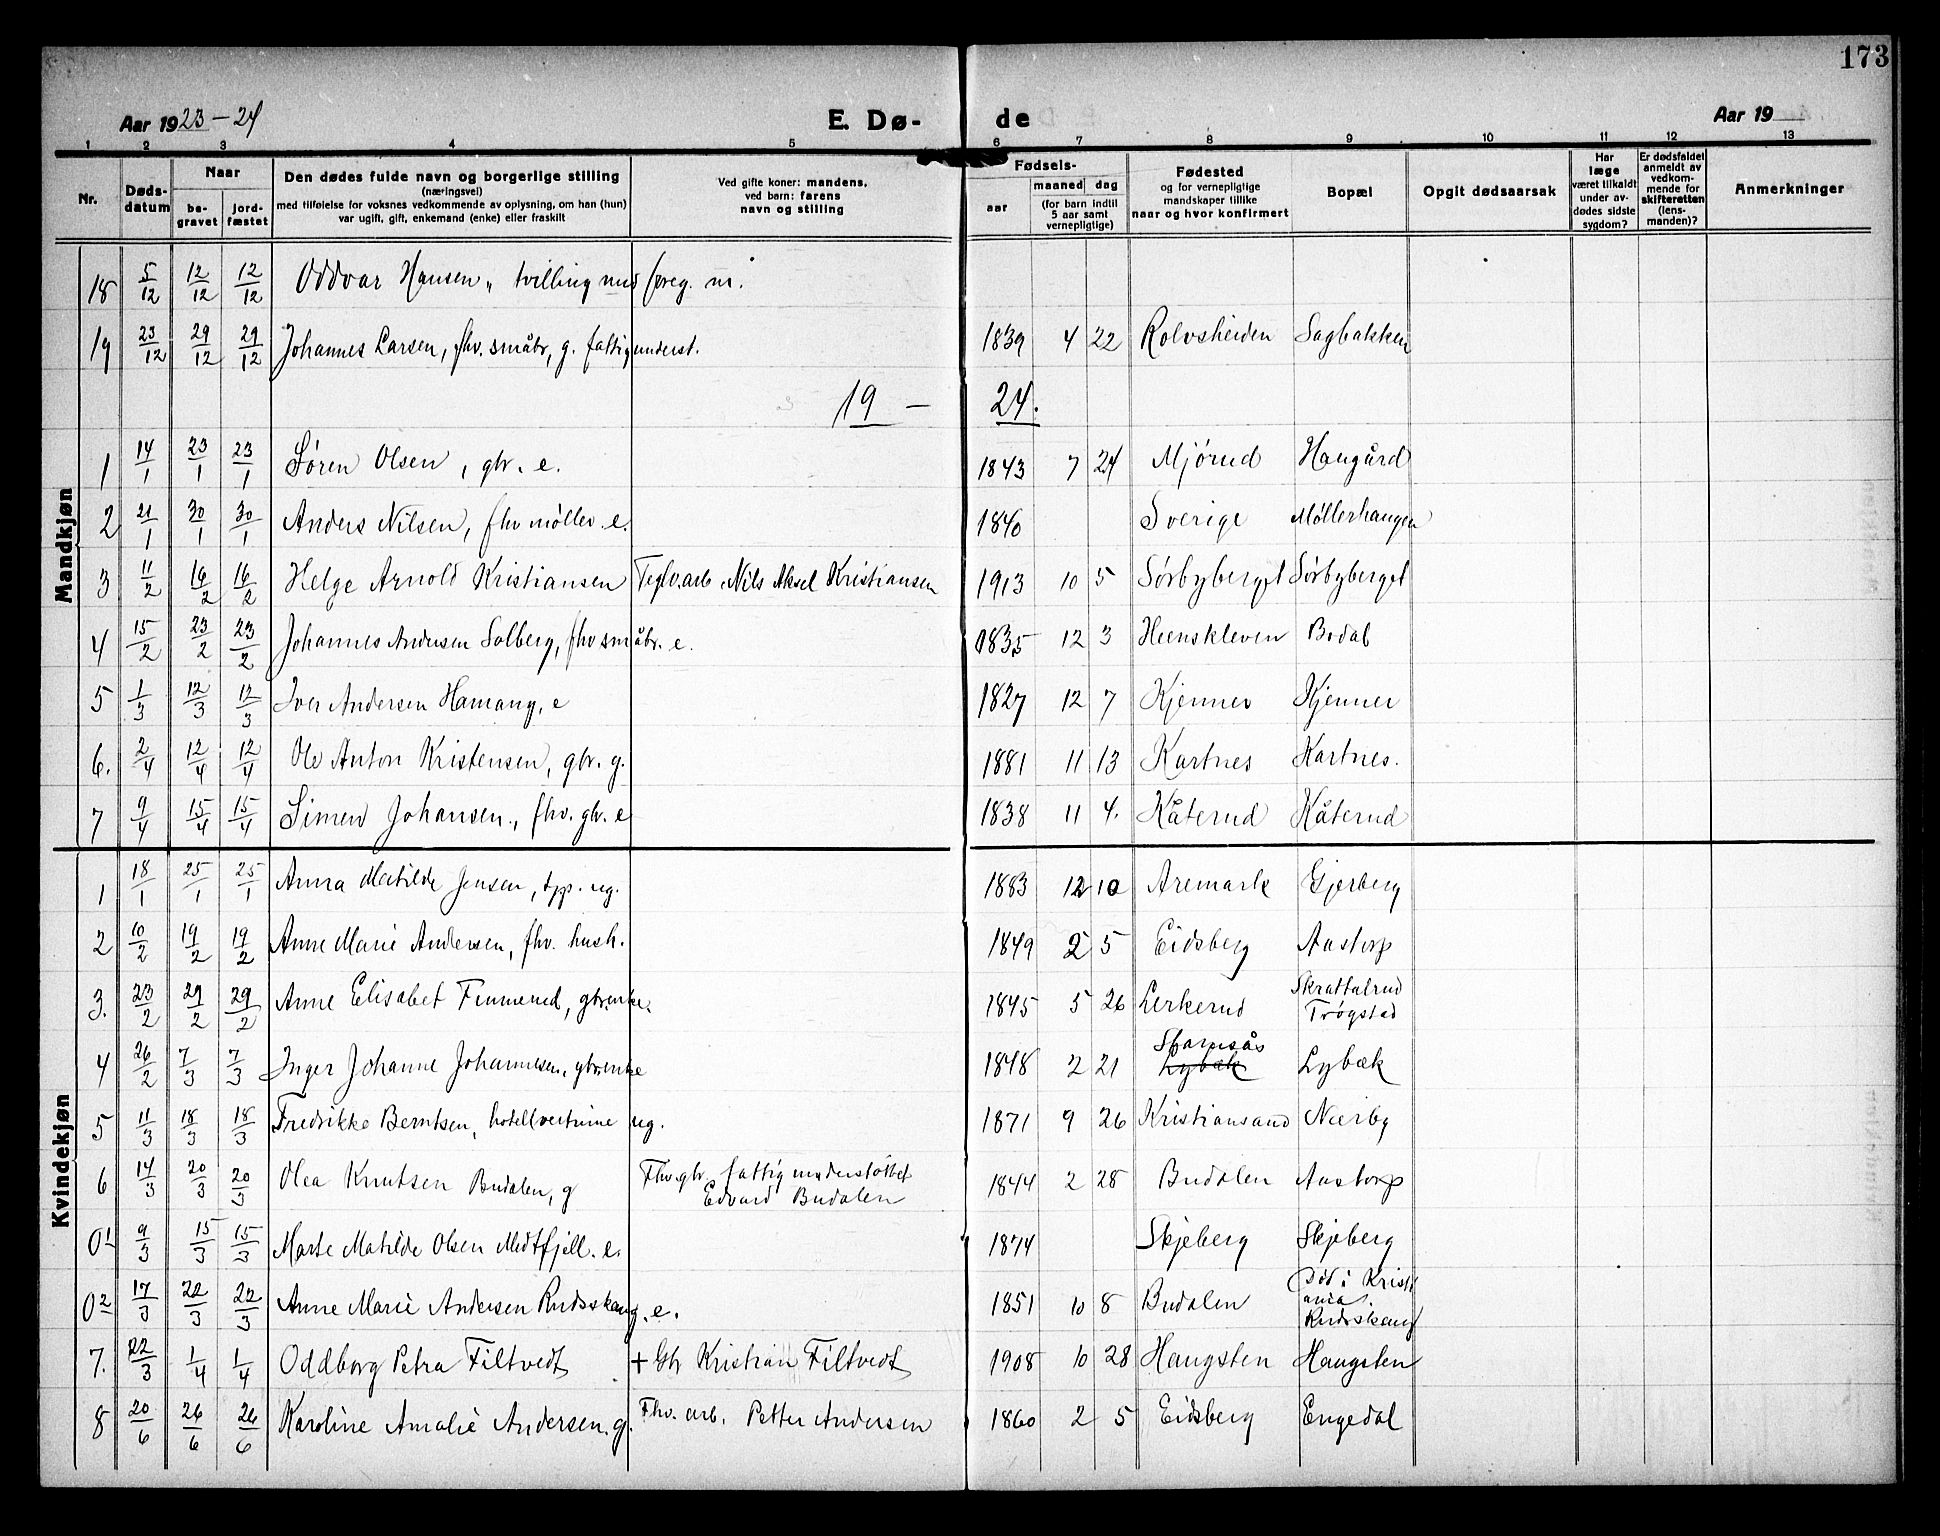 173
Aar 1923-24
E. Dø-
de
Aar 19
1 2 3 4 5 6 7 8 9 10 11 12 13
Nr.
Døds-
datum
Naar
be-
gravet
jord-
fæstet
Den dødes fulde navn og borgerlige stilling
(næringsvei)
med tilføielse for voksnes vedkommende av oplysning, om han (hun)
var ugift, gift, enkemand (enke) eller fraskilt
Ved gifte koner: mandens,
ved børn: farens
navn og stilling
Fødsels-
aar
maaned dag
(for barn indtil
5 aar samt
vernepligtige)
Fødested
og for vernepligtige
mandskaper tillike
naar og hvor konfirmert
Bopæl
Opgit dødsaarsak
Har
læge
været tilkaldt
under av-
dødes sidste
sygdom?
Er dødsfaldet
anmeldt av
vedkom-
mende for
skifteretten
(lens-
manden)?
Anmerkninger
18 5/12 12/12 12/12 Oddvar Hansen „ tvilling med foreg. m.
19 23/12 29/12 29/12 Johannes Larsen, fhv. småbr, g. fattigunderst. 1839 4 22 Rolvsheiden Sagbakken
19 - 24.
Mandkjøn
1 14/1 23/1 23/1 Søren Olsen, gbr. e. 1843 7 24 Mjørud Haugård
2 21/1 30/1 30/1 Anders Nilsen, fhv møller. e. 1840 Sverige Møllerhaugen
3 11/2 16/2 16/2 Helge Arnold Kristiansen Teglv.arb. Nils Aksel Kristiansen 1913 10 5 Sørbyberget Sørbyberget
4 15/2 23/2 23/2 Johannes Andersen Solberg, fhv småbr. e. 1835 12 3 Heenskleven Bodal
5 1/3 12/3 12/3 Iver Andersen Hamang, e 1827 12 7 Kjenner Kjenner
6. 2/4 12/4 12/4 Ole Anton Kristensen, gbr. g. 1881 11 13 Kartnes Kartnes.
7 9/4 15/4 15/4 Simen Johansen., fhv. gbr. e 1838 11 4. Kåterud Kåterud
Kvindekjøn
1 18/1 25/1 25/1 Anna Matilde Jensen, ug. 1883 12 10 Aremark Gjerberg
2 10/2 19/2 19/2 Anne Marie Andersen, fhv. hush. 1849 2 5 Eidsberg Aastorp
3. 23/2 29/2 29/2 Anne Elisabet Finnerud, gbrenke. 1845 5 26 Lerkerud Skrattalrud
Trøgstad
4 26/2 7/3 7/3 Inger Johanne Johannesen, gbrenke 1848 2 21 Lybæk Lybæk
5 11/3 18/3 18/3 Fredrikke Berntsen, hotellvertinne ug. 1871 9 26 Kristiansand Nærby
6 14/3 20/3 20/3 Olea Knutsen Budalen, g Fhv. gbr. fattigunderstøttet
Edvard Budalen 1844 2 28 Budalen Aastorp
01 9/3 15/3 15/3 Marte Matilde Olsen Midtfjell. e. 1874 Skjeberg Skjeberg
02 17/3 22/3 22/3 Anne Marie Andersen Rudsskaug. e. 1851 10 8 Budalen (død i Kristi
ania).
Rudsskaug
7. 22/3 1/4 1/4 Oddborg Petra Filtvedt + Gbr Kristian Filtvedt 1908 10 28 Haugsten Haugsten
8 20/6 26/6 26/6 Karoline Amalie Andersen. g. Fhv. arb. Petter Andersen 1860 2 5 Eidsberg Engedal